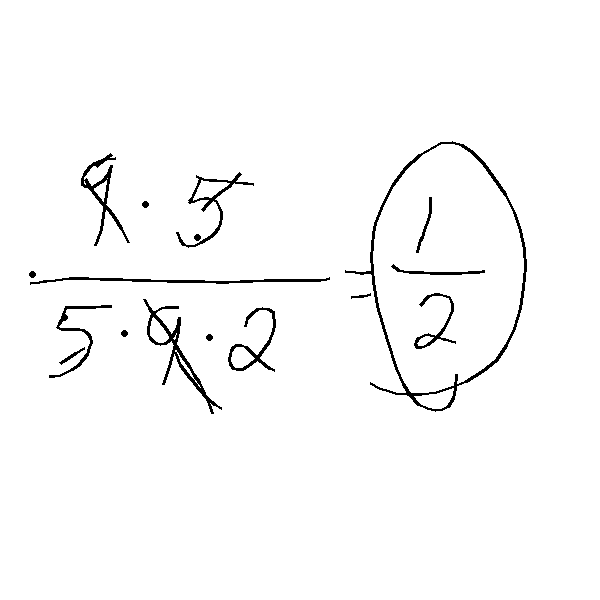 9 · 5
5 · 9 · 2
= 1/2